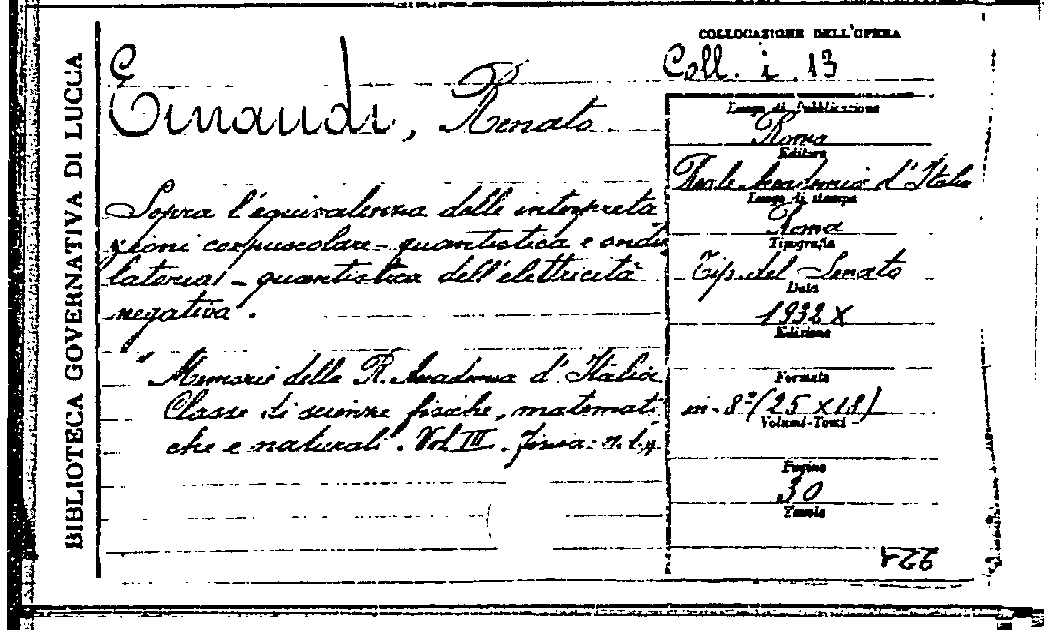 BIBLIOTECA GOVERNATIVA DI LUCCA
Einaudi, Renato
Sopra l'equivalenza delle interpreta
zioni corpuscolare-quantistica e ondu
latoria-quantistica dell'elettricità
negativa.
" Memorie della R. Accademia d'Italia
Classe di scienze fisiche, matemati
che e naturali. Vol III. Fisica: n.
COLLOCAZIONE DELL'OPERA
Coll. i. 13
Luogo di Pubblicazione
Roma
Editore
Reale Accademia d'Italia
Luogo di stampa
Roma
Tipografia
Tip. del Senato
Data
1932 X
Edizione
Formato
in-8º (25 x 18)
Volumi-Tomi
Pagine
30
Tavole